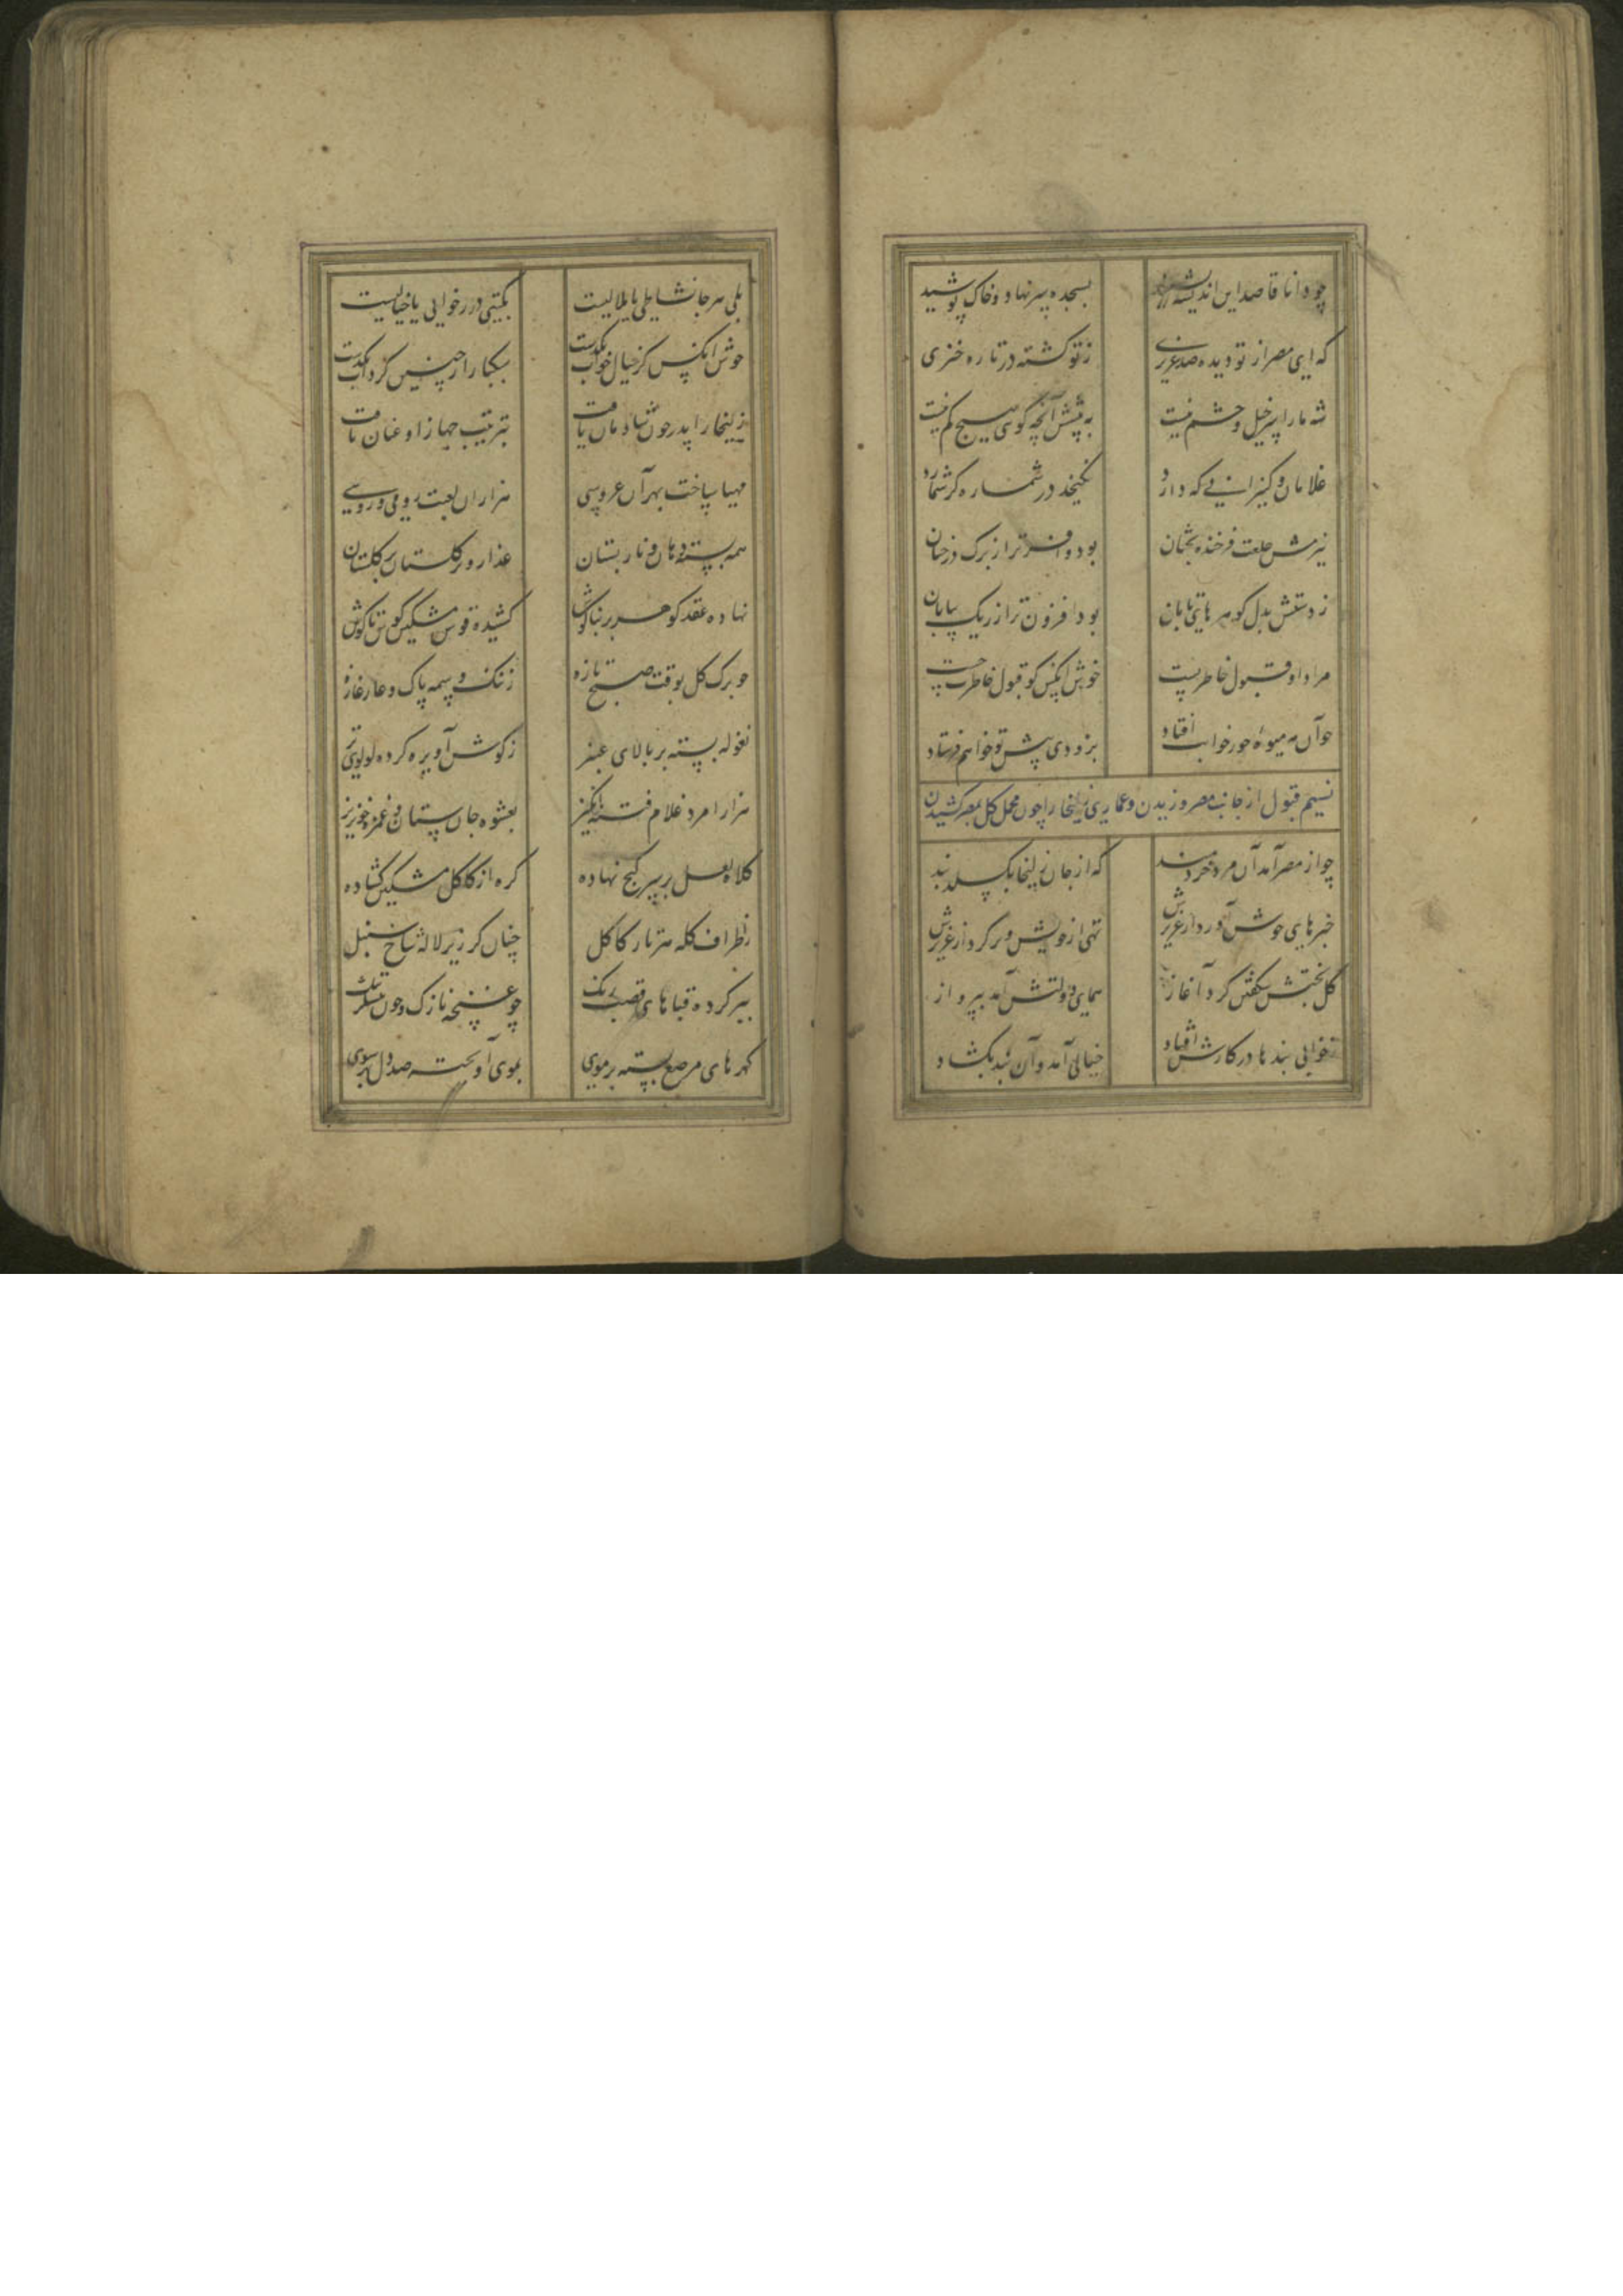 چو دانا قاصد این اندیشه بشنید بسجده سر نهاد و خاک بوسید
که ای مصر از تو دیده صد عزیزی ز تو کشته در تازه خیزی
شه ما را سر خیل و حشم نیست به پیش آنچه کوی هیچ کم نیست
غلامان و کنیزانی که دارد نکنجد در شماره کر شمارد
نیزمش خلعت فرخنده بختان بود وافرتر از برک درختان
ز دستش بذل کوهرهای تابان بود افزون‌تر از ریک بیابان
مراد او قبول خاطر تست خوش آنکس کو قبول خاطرت جست
چو آن میوه خورد خوانت افتاد بزودی پیش تو خواهم فرستاد
نسیم قبول از جانب مصر وزیدن و عماری زلیخا را چون محمل کل بمصر کشیدن
چو از مصر آمد آن مرد خردمند که از جان زلیخا بکسلد بند
خبرهای خوش آورد از عزیزش تهی از خویش و پر کرد از عزیزش
کل بختش شکفتن کرد آغاز همای دولتش آمد بپرواز
ز خوابی بندها در کارش افتاد خیالی آمد و آن بند بکشاد
بلی هر جا نشاطی یا ملالیست بکیتی در ز خوابی یا خیالیست
خوش آنکس کز خیال و خواب بکذشت سبکبار از چنین کرداب بکذشت
زلیخا را پدر چون شادمان یافت بترتیب جهاز او عنان تافت
مهیا ساخت بهر آن عروسی هزاران لعبت رومی و روسی
همه پسته دهان و نار پستان عذار و بر کلستان بر کلستان
نهاده عقد کوهر بر بناکوش کشیده قوس مشکین کوش تا کوش
چو برک کل بوقت صبح تازه ز ننک وسمه پاک و عار غازه
نغوله بسته بر بالای عنبر ز کوش آویزه کرده لولوی تر
هزار امرد غلام فتنه انکیز بعشوه جان ستان و غمزه خونریز
کلاه لعل بر سر کج نهاده کره از کاکل مشکین کشاده
ز اطراف کله هر تار کاکل چنان کز زیر لاله شاخ سنبل
ببر کرده قباهای قصب رنک چو غنچه نازک و چون نیشکر تنک
کمرهای مرصع بسته بر موی بموی آویخته صد دل بهر سوی